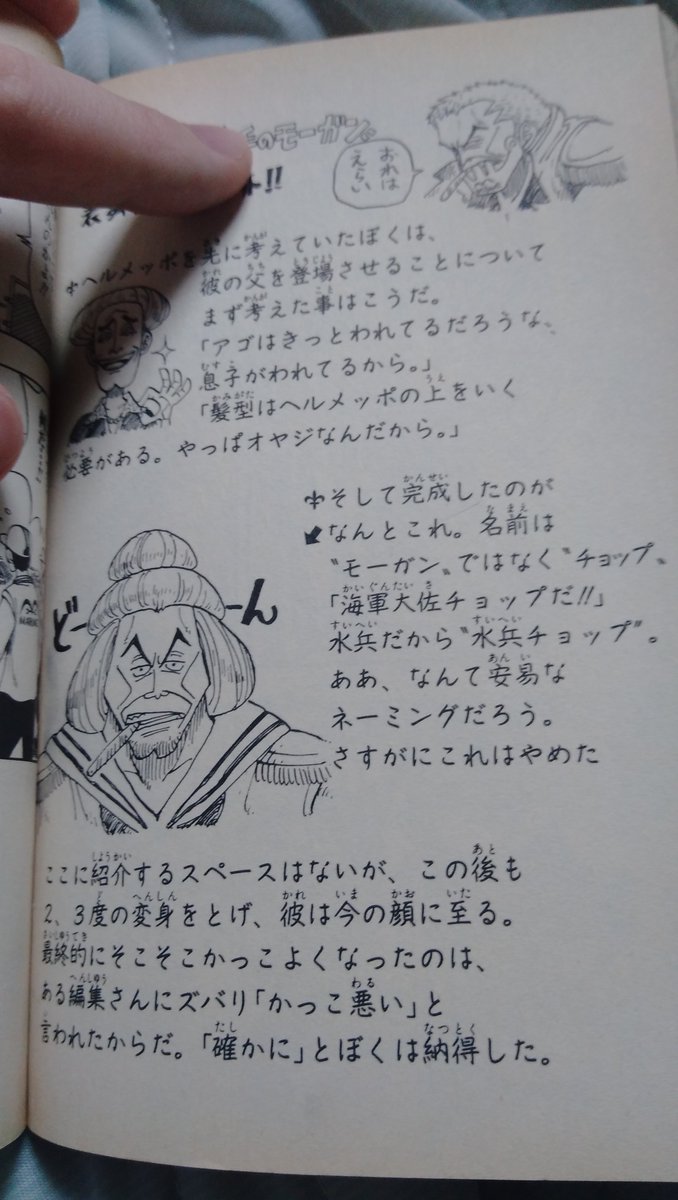 のモーガン
おれは
えらい
!!
ヘルメッポを先に考えていたぼくは、
彼の父を登場させることについて
まず考えた事はこうだ。
「アゴはきっとわれてるだろうな、
息子がわれてるから。」
「髪型はヘルメッポの上をいく
必要がある。やっぱオヤジなんだから。」
そして完成したのが
なんとこれ。名前は
〝モーガン〟ではなく〝チョップ〟
「海軍大佐チョップだ!!」
水兵だから〝水兵チョップ〟。
ああ、なんて安易な
ネーミングだろう。
さすがにこれはやめた
どーん
ここに紹介するスペースはないが、この後も
2、3度の変身をとげ、彼は今の顔に至る。
最終的にそこそこかっこよくなったのは、
ある編集さんにズバリ「かっこ悪い」と
言われたからだ。「確かに」とぼくは納得した。